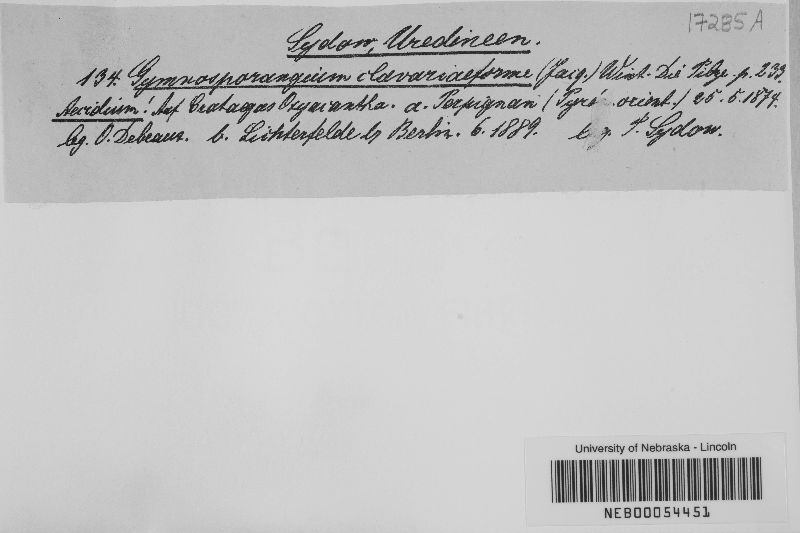 17285A
Sydow, Uredineen.
134. Gymnosporangium clavariaeforme (Jacq.) Wint. Die Pilze p. 233.
Aecidium! Auf Crataegus Oxyacantha. a. Perpignan (Pyrén. orient.) 25. 5. 1874.
leg. O. Debeaux. b. Lichterfelde b/ Berlin. 6. 1889. P. Sydow.
University of Nebraska - Lincoln
NEB00054451